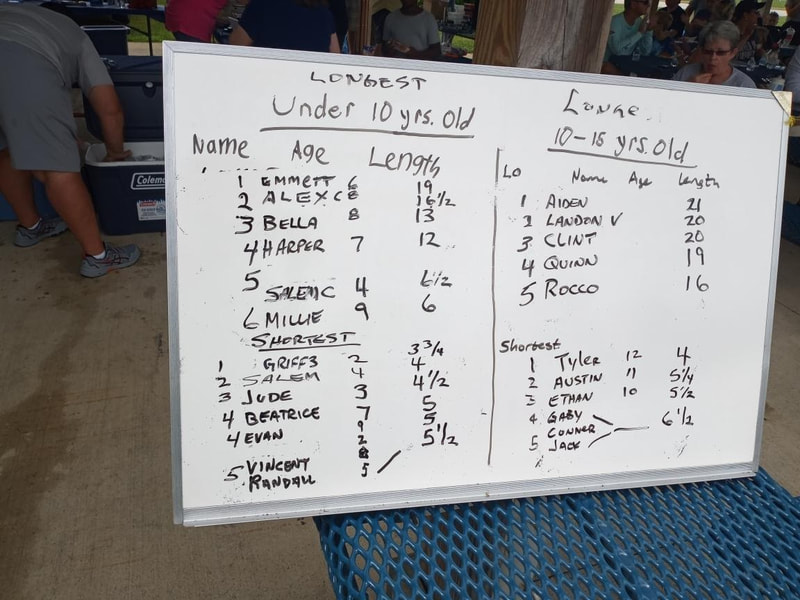 LONGEST
Under 10 yrs. Old
Name Age Length
1 EMMETT 6 19
2 ALEXC 8 16 1/2
3 BELLA 8 13
4 HARPER 7 12
5 SALEMC 4 6 1/2
6 MILLIE 9 6
SHORTEST
1 GRIFF 3 2 3 3/4
2 SALEM 4 4
3 JUDE 3 4 1/2
4 BEATRICE 7 5
4 EVAN 9 5
5 VINCENT 2 5 1/2
RANDALL 5
10-15 yrs. Old
Lo Name Age Length
1 AIDEN 21
2 LANDON V 20
3 CLINT 20
4 QUINN 19
5 ROCCO 16
Shortest
1 Tyler 12 4
2 AUSTIN 11 5 1/4
3 ETHAN 10 5 1/2
4 GABY
CONNER 6 1/2
5 JACK
Coleman